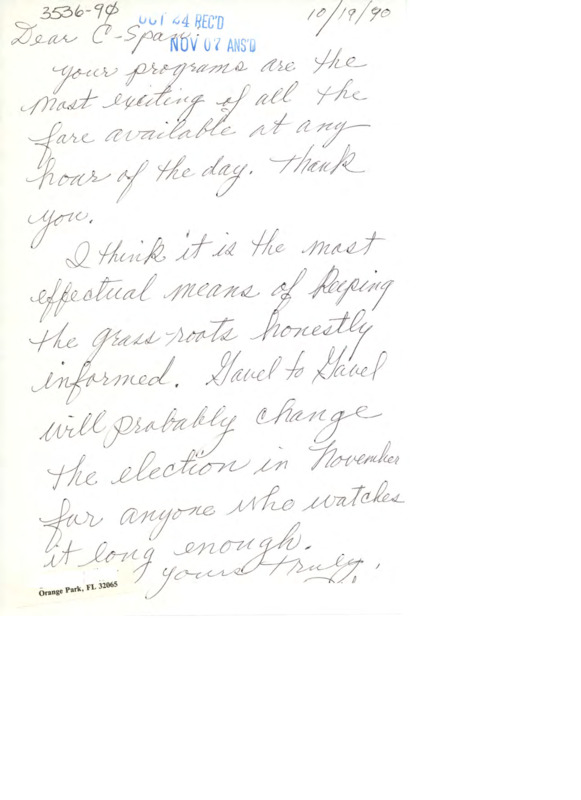 3536-90
OCT 24 REC'D
10/19/90
Dear C-Span:
NOV 07 ANS'D
Your programs are the
most exciting of all the
fare available at any
hour of the day. Thank
you.
I think it is the most
effectual means of keeping
the grass-roots honestly
informed. Gavel to Gavel
will probably change
the election in November
for anyone who watches
it long enough.
Yours truly,
Orange Park, FL 32065